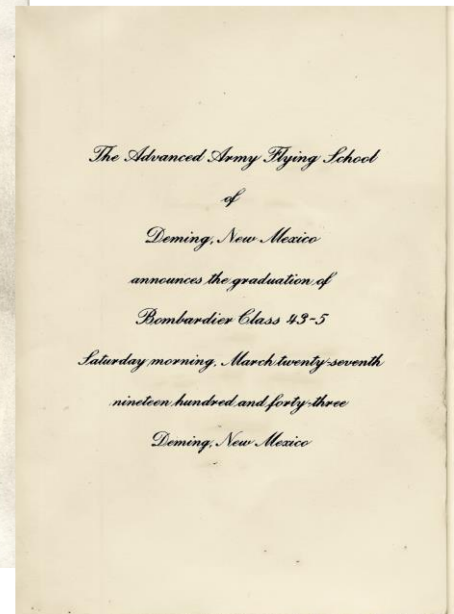 The Advanced Army Flying School
of
Deming, New Mexico
announces the graduation of
Bombardier Class 43-5
Saturday morning, March twenty-seventh
nineteen hundred and forty-three
Deming, New Mexico